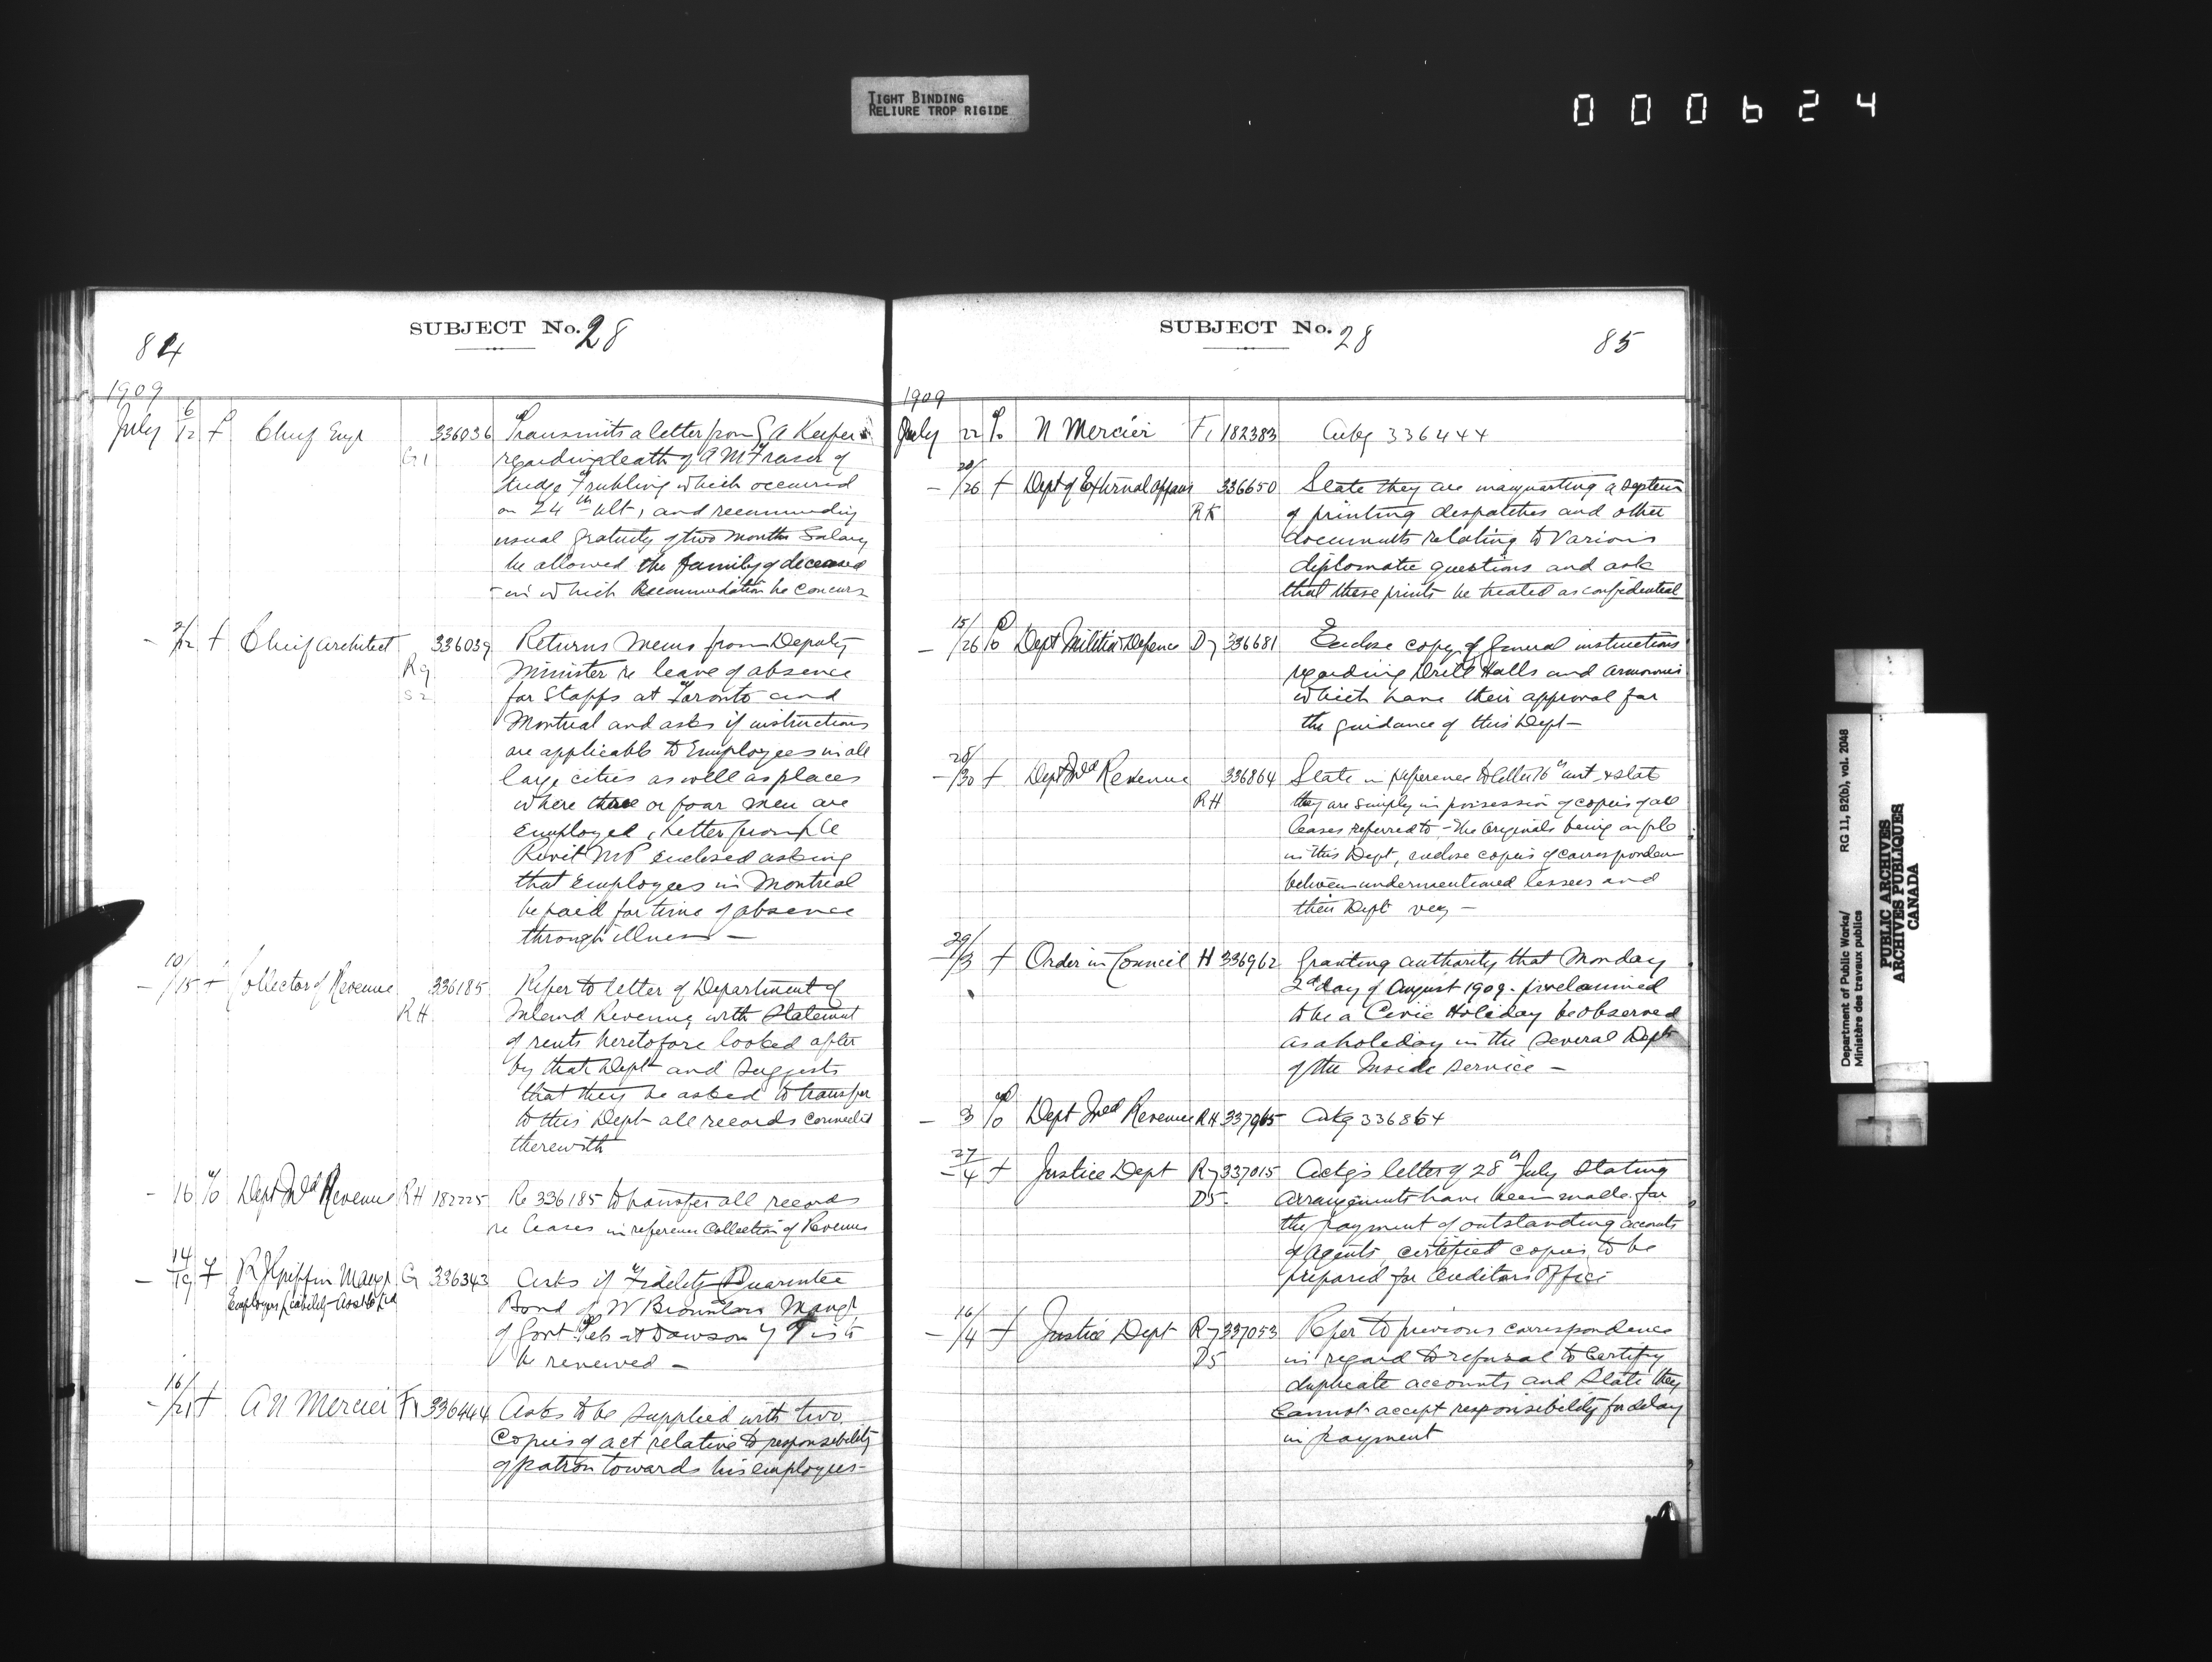 TIGHT BINDING
RELIURE TROP RIGIDE
000624
84
SUBJECT No. 28
1909
July 6/12 f Chief Engr G1 336036 Transmits a letter from G A Keefer
regarding death of A M Fraser of
dredge Fruhling which occurred
on 24th ult, and recommending
usual gratuity of two months Salary
be allowed the family of deceased
- in which Recommendation he concurs
- 2/12 f Chief Architect R9 S2 336039 Returns Memo from Deputy
Minister re leave of absence
for Staffs at Toronto and
Montreal and asks if instructions
are applicable to Employees in all
large cities as well as places
where three or four men are
employed, letter from
Rivet MP enclosed asking
that employees in Montreal
be paid for time of absence
through illness -
- 10/15 f Collector of Revenue RH 336185 Refer to letter of Department of
Inland Revenue with Statement
of rents heretofore looked after
by that Dept and suggests
that they be asked to transfer
to this Dept all records connected
therewith
- 16 Dept Inld Revenue RH 182225 Re 336185 to transfer all records
re leases in reference Collection of Revenue
- 14/19 f R J Griffin Mangr G 336343 Asks if Fidelity Guarantee
Employers Liability
Bond of W Brownlow Mangr
of Govt Tels at Dawson Y T is to
be renewed -
- 16/21 f A N Mercier F1 336444 Asks to be supplied with two
Copies of act relative to responsibility
of patron towards his employees -
SUBJECT No. 28
85
1909
July 22 N Mercier F1 182383 Ackg 336444
- 20/26 f Dept of External Affairs RK 336650 State they are inaugurating a system
of printing despatches and other
documents relating to various
diplomatic questions and ask
that these prints be treated as confidential
- 15/26 Dept Militia & Defence D7 336681 Enclose copy of General instructions
regarding Drill Halls and Armouries
which have their approval for
the guidance of this Dept -
- 28/30 f Dept Inld Revenue RH 336864 State in reference to letter 16th inst & stat
they are simply in possession of copies of all
leases referred to - the Originals being on file
in this Dept, enclose copies of correspondence
between undermentioned lessees and
their Dept
- 29/3 f Order in Council H 336962 Granting authority that Monday
2d day of August 1909. proclaimed
to be a Civic Holiday be observed
as a holiday in the several Depts
of the Inside service -
- 3 Dept Inld Revenue RH Ackg 336864
- 27/4 f Justice Dept R7 D5 337015 Ackg's letter of 28th July stating
arrangements have been made for
the payment of outstanding accounts
of agents, certified copies to be
prepared for Auditors Office
- 16/4 f Justice Dept R7 D5 337053 Refer to previous correspondence
in regard to refusal to certify
duplicate accounts and State they
cannot accept responsibility for delay
in payment
Department of Public Works/ RG 11, B2(b), vol. 2048
Ministère des travaux publics
PUBLIC ARCHIVES
ARCHIVES PUBLIQUES
CANADA